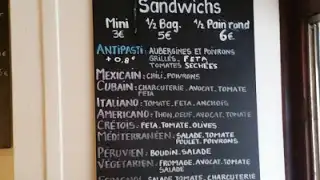 Sandwichs
Mini ½ Bag. ½ Pain rond
3€ 5€ 6€
ANTIPASTI: AUBERGINES ET POIVRONS
+0.8€ GRILLÉS, FETA
TOMATES SECHÉES
MEXICAIN: CHILI, POIVRONS
CUBAIN: CHARCUTERIE, AVOCAT, TOMATE
FETA
ITALIANO: TOMATE, FETA, ANCHOIS
AMERICANO: THON, OEUF, AVOCAT, TOMATE
CRÉTOIS: FETA, TOMATE, OLIVES
MÉDITERRANÉEN: SALADE, TOMATE
POULET, POIVRONS
PERUVIEN: BOUDIN, SALADE
VEGETARIEN: FROMAGE, AVOCAT, TOMATE
SALADE
SALADE, TOMATE, CHARCUTERIE